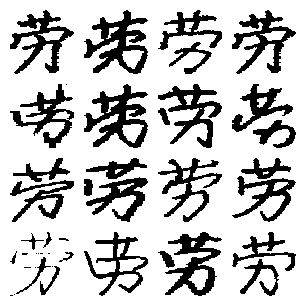 劳劳劳劳
劳劳劳劳
劳劳劳劳
劳劳劳劳